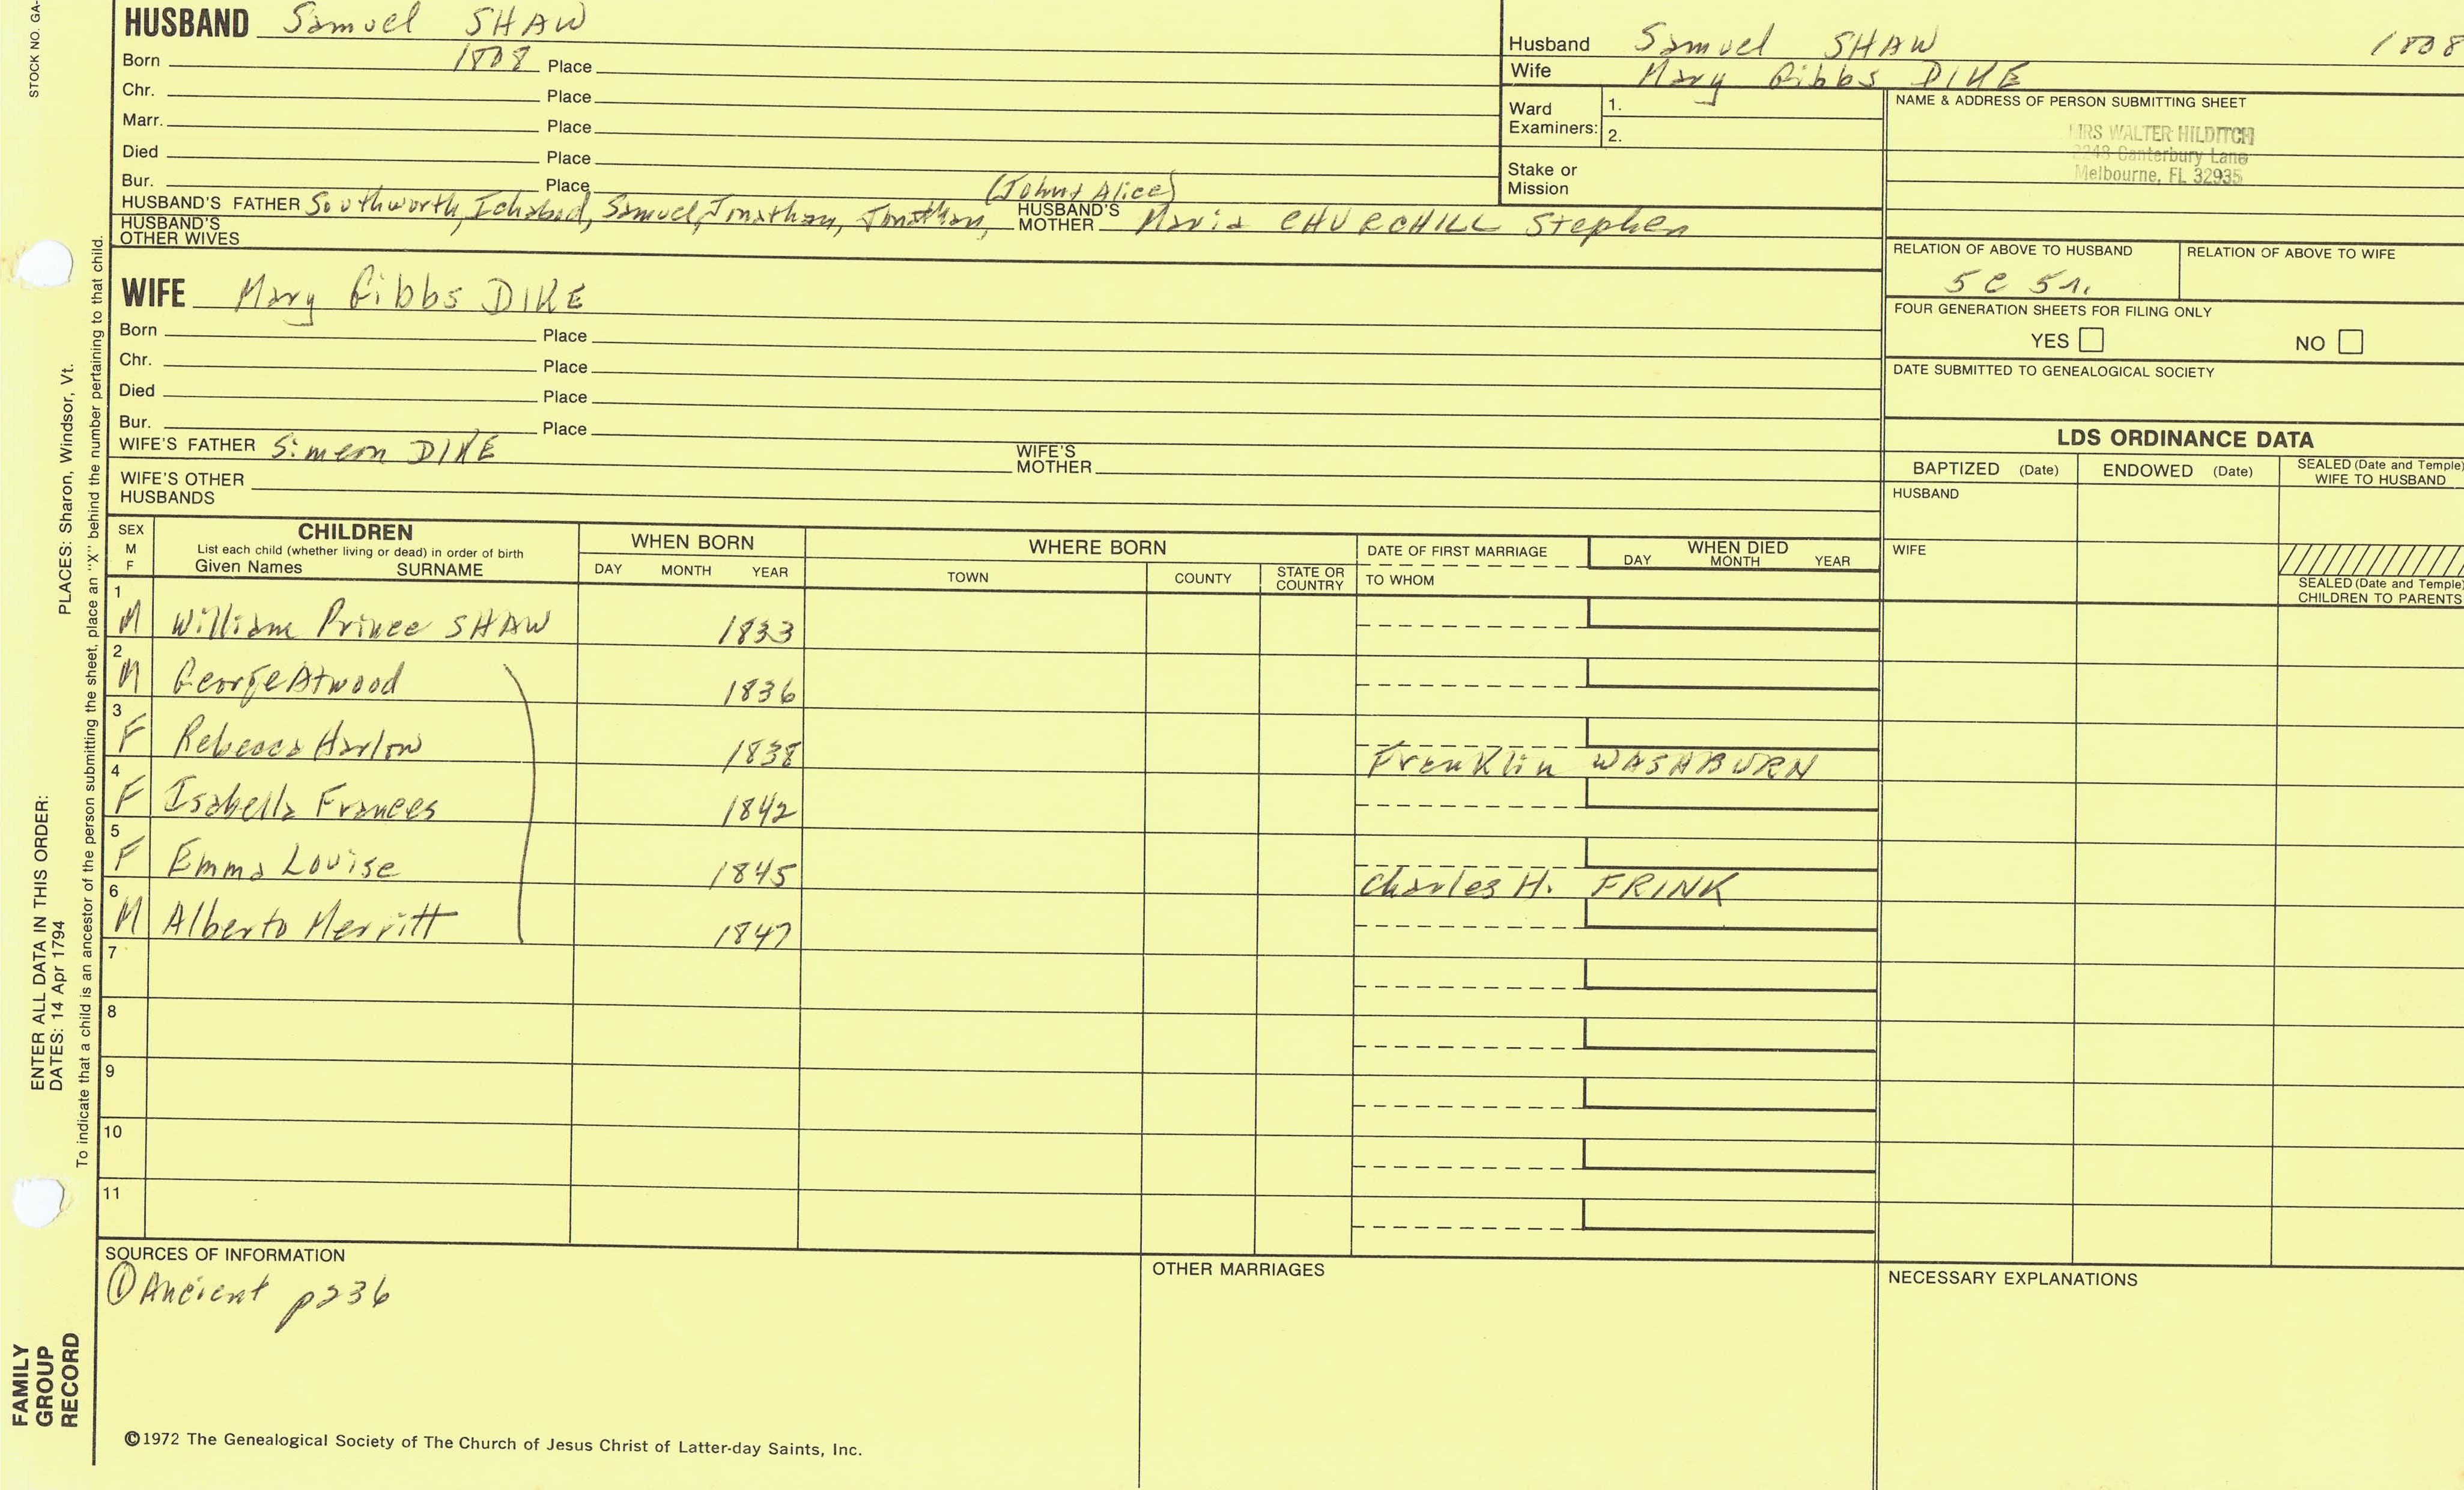 STOCK NO. GA-
HUSBAND Samuel SHAW
Born 1808 Place
Chr. Place
Marr. Place
Died Place
Bur. Place
(John & Alice)
HUSBAND'S FATHER Southworth, Ichabod, Samuel, Jonathan, Jonathan, HUSBAND'S MOTHER Maria CHURCHILL Stephen
HUSBAND'S OTHER WIVES
Husband Samuel SHAW 1808
Wife Mary Gibbs DIKE
Ward Examiners: 1.
2.
Stake or Mission
NAME & ADDRESS OF PERSON SUBMITTING SHEET
MRS WALTER HILDITCH
2248 Canterbury Lane
Melbourne, FL 32935
RELATION OF ABOVE TO HUSBAND RELATION OF ABOVE TO WIFE
5c 5r.
FOUR GENERATION SHEETS FOR FILING ONLY
YES NO
DATE SUBMITTED TO GENEALOGICAL SOCIETY
WIFE Mary Gibbs DIKE
Born Place
Chr. Place
Died Place
Bur. Place
WIFE'S FATHER Simeon DIKE WIFE'S MOTHER
WIFE'S OTHER HUSBANDS
LDS ORDINANCE DATA
BAPTIZED (Date) ENDOWED (Date) SEALED (Date and Temple) WIFE TO HUSBAND
HUSBAND
WIFE
SEALED (Date and Temple) CHILDREN TO PARENTS
SEX M F
CHILDREN
List each child (whether living or dead) in order of birth
Given Names SURNAME
WHEN BORN
DAY MONTH YEAR
WHERE BORN
TOWN COUNTY STATE OR COUNTRY
DATE OF FIRST MARRIAGE
TO WHOM
WHEN DIED
DAY MONTH YEAR
1 M William Prince SHAW 1833
2 M George Atwood 1836
3 F Rebecca Harlow 1838 Franklin WASHBURN
4 F Isabella Frances 1842
5 F Emma Louise 1845 Charles H. FRINK
6 M Alberto Merritt 1847
7
8
9
10
11
SOURCES OF INFORMATION
① Ancient p236
OTHER MARRIAGES
NECESSARY EXPLANATIONS
©1972 The Genealogical Society of The Church of Jesus Christ of Latter-day Saints, Inc.
FAMILY GROUP RECORD
ENTER ALL DATA IN THIS ORDER:
DATES: 14 Apr 1794
PLACES: Sharon, Windsor, Vt.
To indicate that a child is an ancestor of the person submitting the sheet, place an "X" behind the number pertaining to that child.